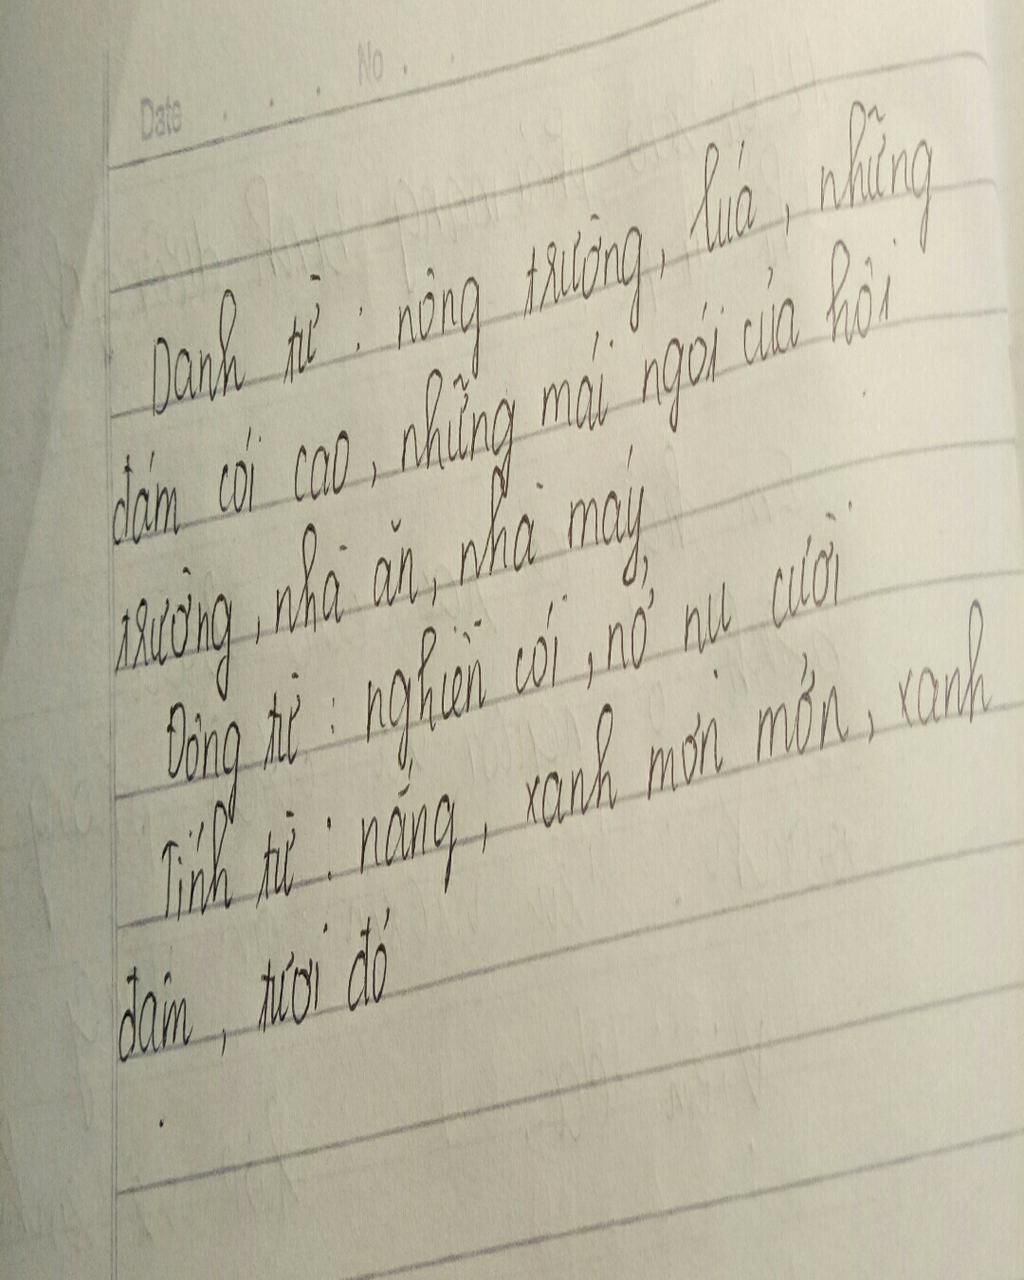 Date . . . No . .
Danh từ : nông trường, luá, những
đám cói cao, những mái ngói của hội
trường, nhà ăn, nhà máy,
Động từ : nghiền cói, nở nụ cười
Tính từ : nắng, xanh mơn mởn, xanh
đậm, tươi đỏ
.